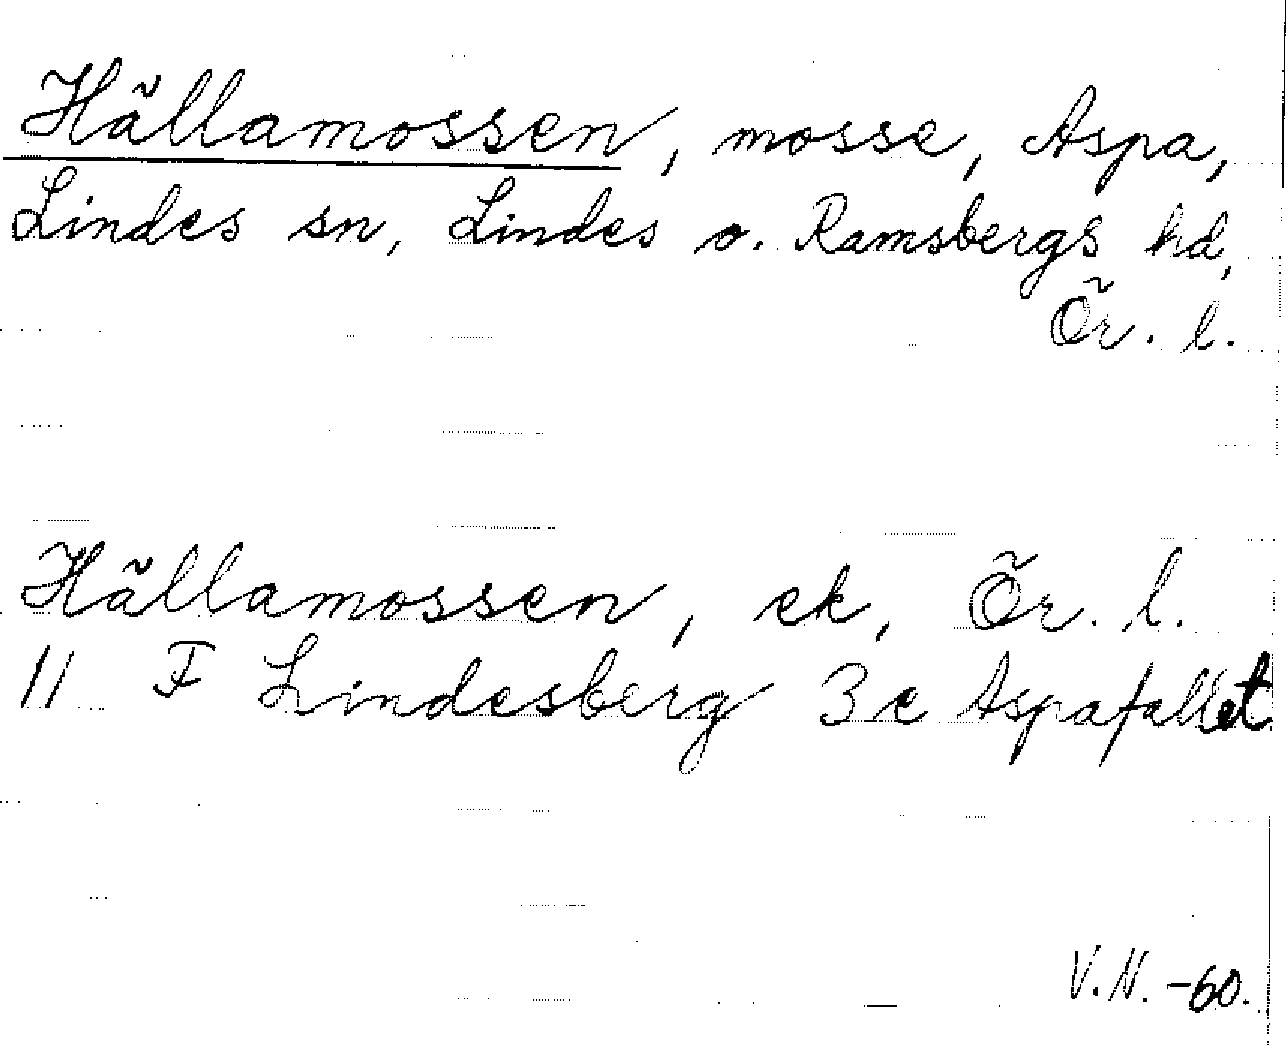 Hällamossen, mosse, Aspa,
Lindes sn, Lindes o. Ramsbergs hd,
Ör. l.
Hällamossen, ek, Ör. l.
11 F Lindesberg 3c Aspafallet
V.N. -60.